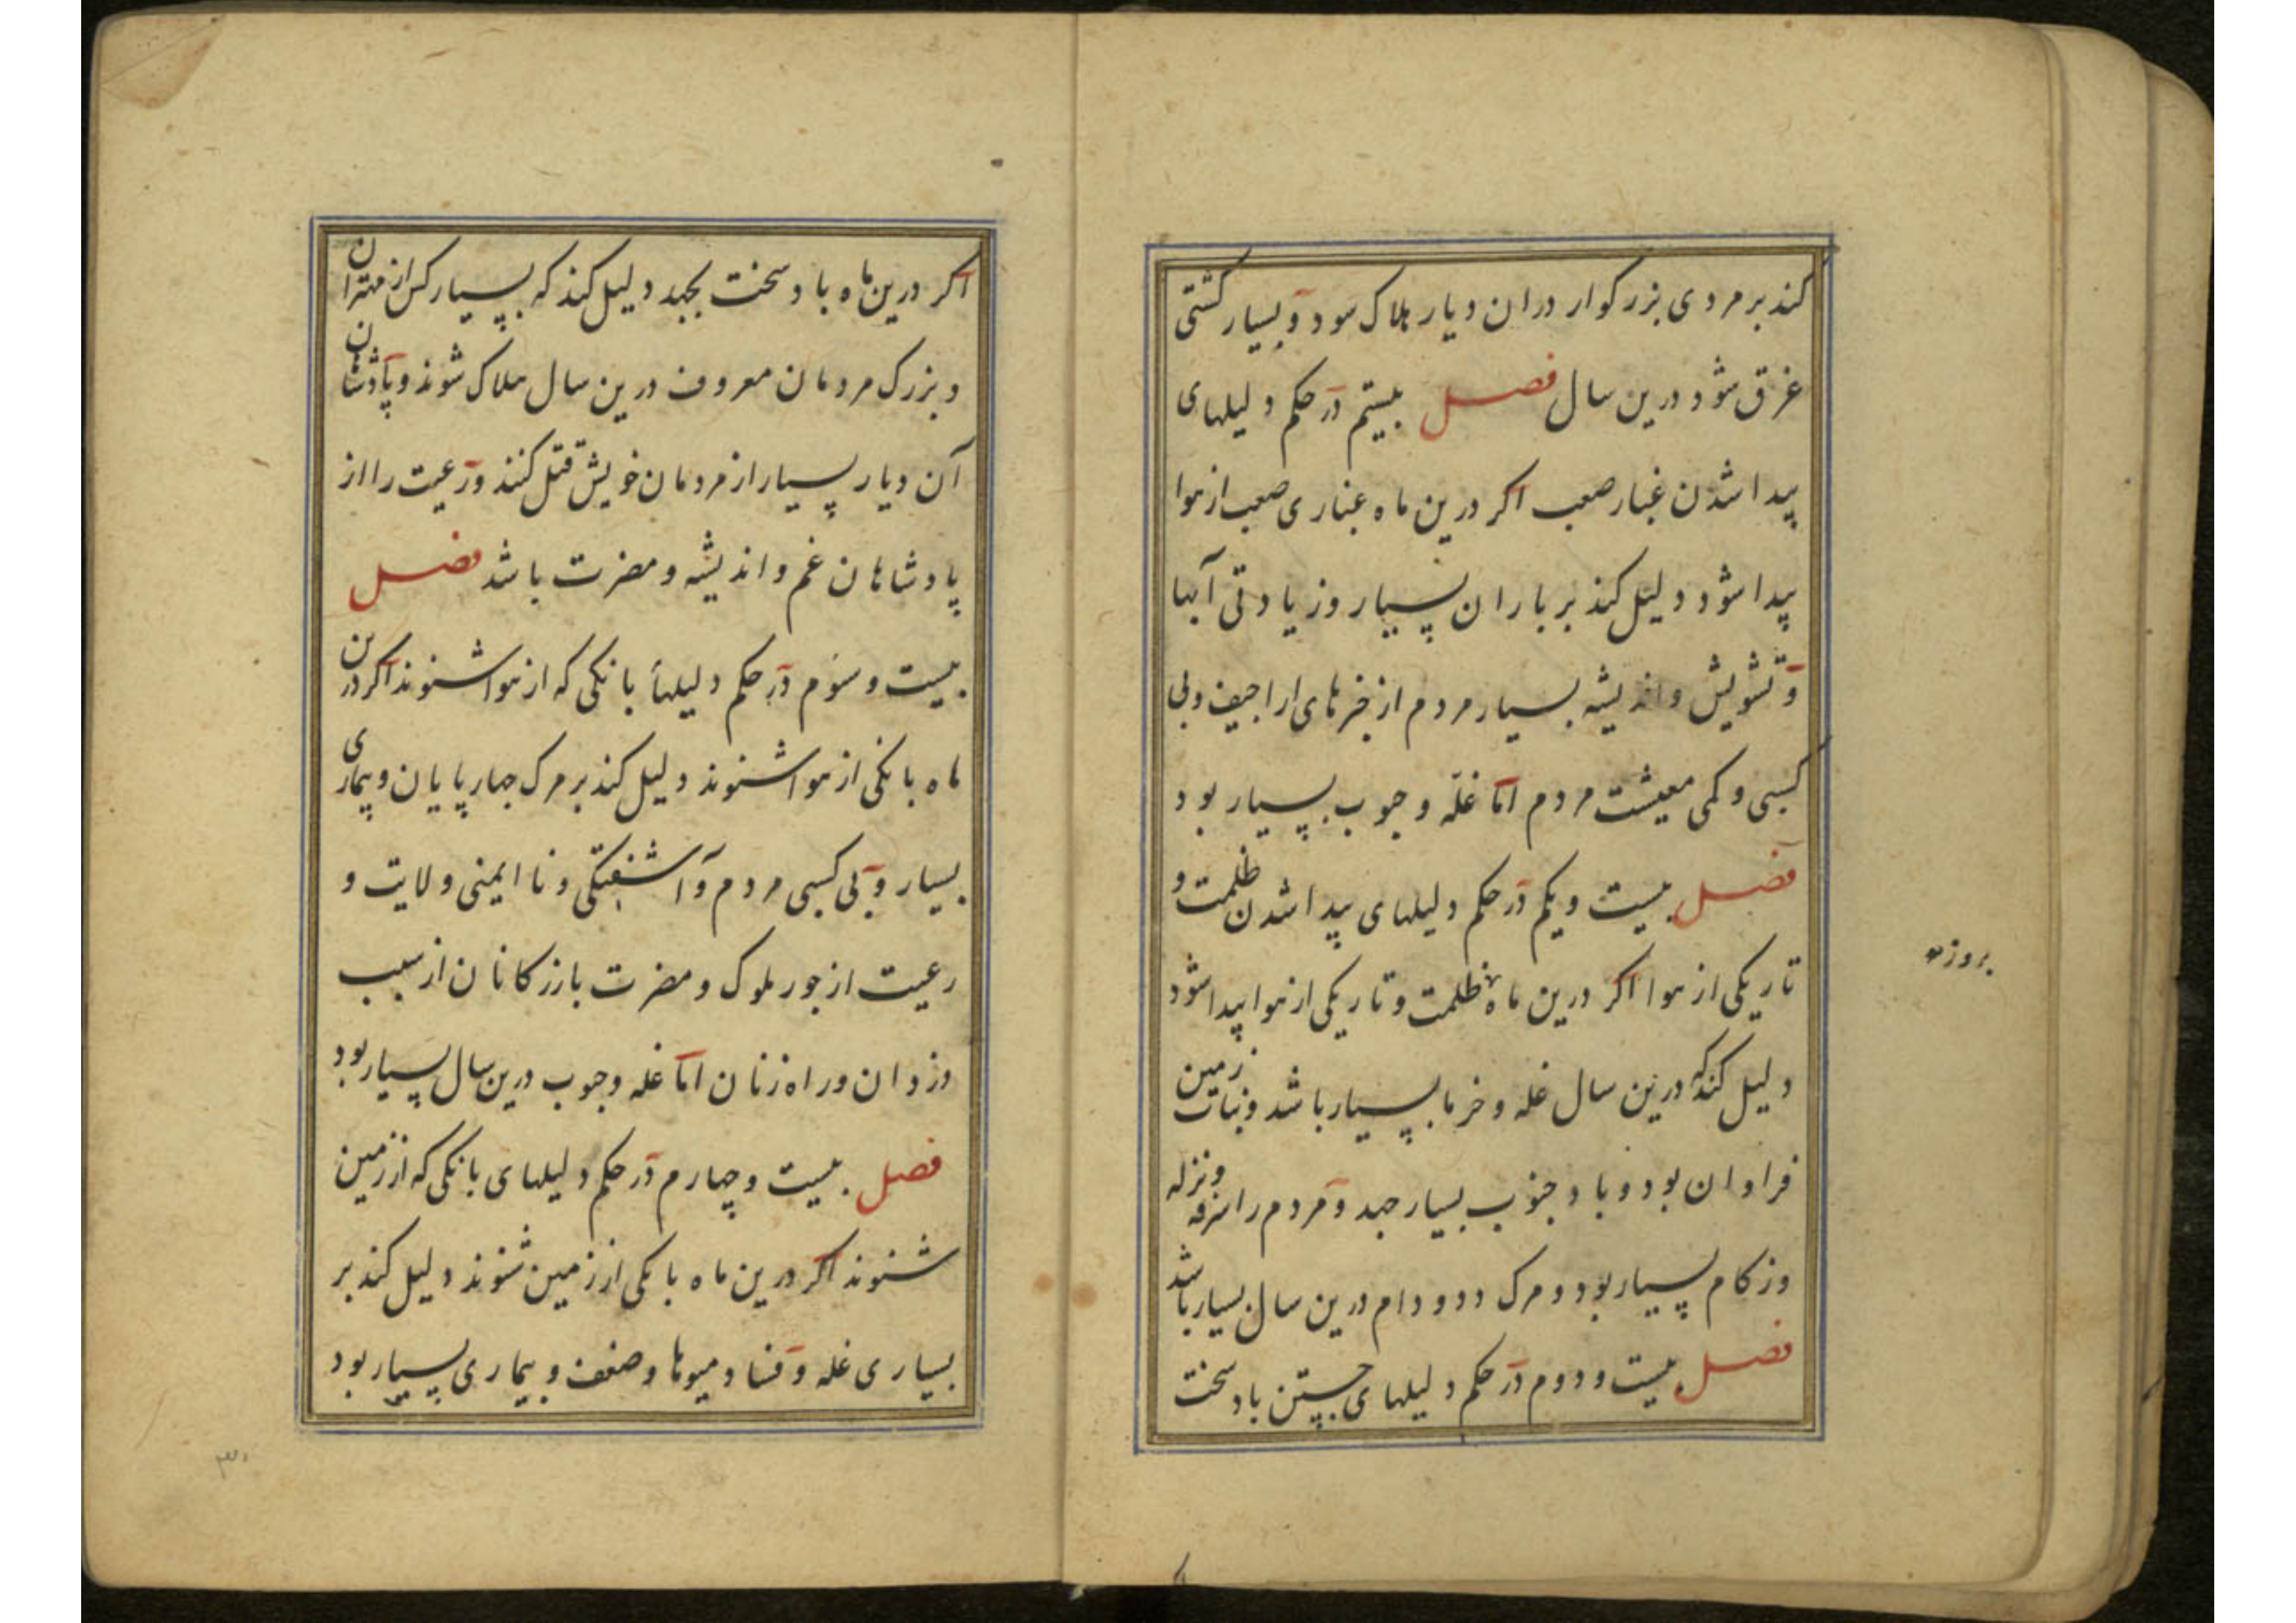 کند بر مردی بزرکوار دران دیار هلاک سود و بسیار کشتی
غرق شود درین سال فصل بیستم در حکم دلیلهای
پیدا شدن غبار صعب اکر درین ماه غباری صعب از هوا
پیدا شود دلیل کند بر باران بسیار و زیادتی آبها
و تشویش و اندیشه بسیار مردم از خبرهای اراجیف و بی
کسبی و کمی معیشت مردم اما غلّه و حبوب بسیار بود
فصل بیست و یکم در حکم دلیلهای پیدا شدن ظلمت و
تاریکی از هوا اکر درین ماه ظلمت و تاریکی از هوا پیدا شود
بروز
دلیل کند که درین سال غله و خرما بسیار باشد و نبات زمین
فراوان بود و باد جنوب بسیار جهد و مردم را سرفه و نزله
و زکام بسیار بود و مرک دد و دام درین سال بسیار باشد
فصل بیست و دوم در حکم دلیلهای جستن باد سخت
اکر درین ماه باد سخت بجهد دلیل کند که بسیار کس از مهتران
و بزرک مردمان معروف درین سال هلاک شوند و پادشاهان
آن دیار بسیار از مردمان خویش قتل کنند و رعیت را از
پادشاهان غم و اندیشه و مضرت باشد فصل
بیست و سوم در حکم دلیلهأ بانکی که از هوا شنوند اکر درین
ماه بانکی از هوا شنوند دلیل کند بر مرک چهارپایان و بیماری
بسیار و بی کسبی مردم و آشفتکی و نا ایمنی ولایت و
رعیت از جور ملوک و مضرت بازرکانان از سبب
دزدان و راه زنان اما غله و حبوب درین سال بسیار بود
فصل بیست و چهارم در حکم دلیلهای بانکی که از زمین
شنوند اکر درین ماه بانکی از زمین شنوند دلیل کند بر
بسیاری غله و فساد میوها و ضعف و بیماری بسیار بود
۳۰